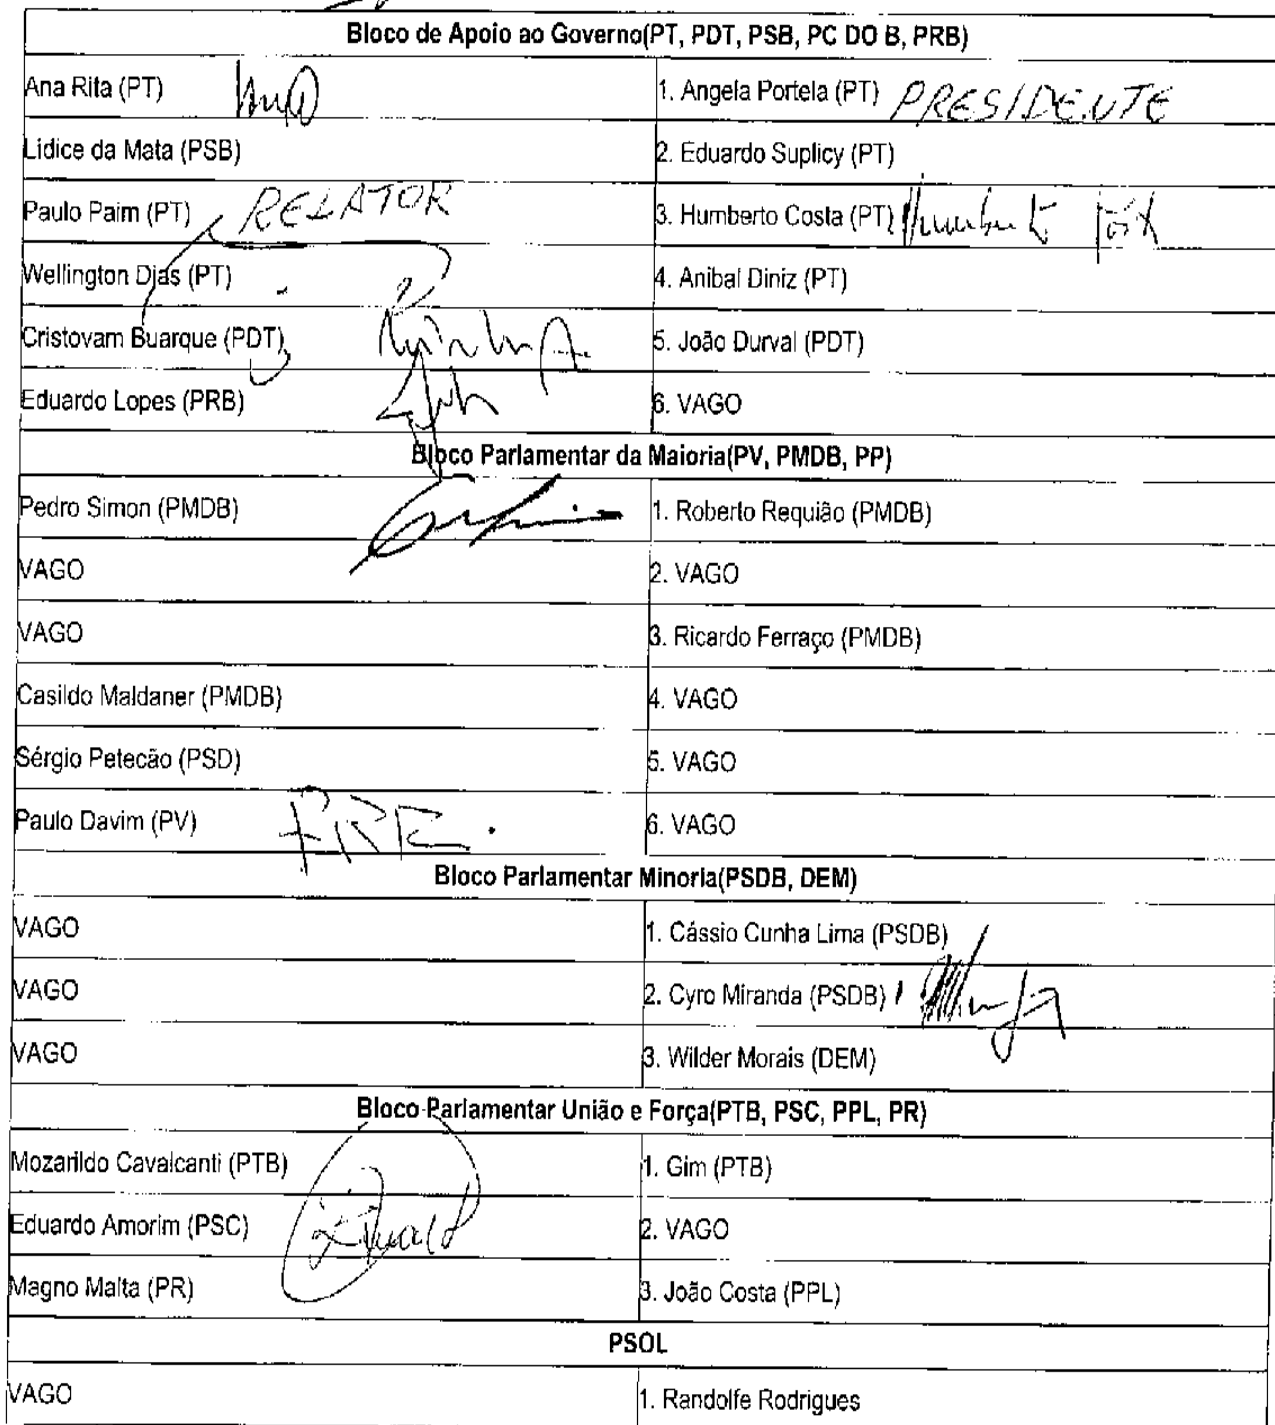 Bloco de Apoio ao Governo(PT, PDT, PSB, PC DO B, PRB)
Ana Rita (PT) 1. Angela Portela (PT) PRESIDENTE
Lidice da Mata (PSB) 2. Eduardo Suplicy (PT)
Paulo Paim (PT) RELATOR 3. Humberto Costa (PT)
Wellington Dias (PT) 4. Anibal Diniz (PT)
Cristovam Buarque (PDT) 5. João Durval (PDT)
Eduardo Lopes (PRB) 6. VAGO
Bloco Parlamentar da Maioria(PV, PMDB, PP)
Pedro Simon (PMDB) 1. Roberto Requião (PMDB)
VAGO 2. VAGO
VAGO 3. Ricardo Ferraço (PMDB)
Casildo Maldaner (PMDB) 4. VAGO
Sérgio Petecão (PSD) 5. VAGO
Paulo Davim (PV) 6. VAGO
Bloco Parlamentar Minoria(PSDB, DEM)
VAGO 1. Cássio Cunha Lima (PSDB)
VAGO 2. Cyro Miranda (PSDB)
VAGO 3. Wilder Morais (DEM)
Bloco Parlamentar União e Força(PTB, PSC, PPL, PR)
Mozarildo Cavalcanti (PTB) 1. Gim (PTB)
Eduardo Amorim (PSC) 2. VAGO
Magno Malta (PR) 3. João Costa (PPL)
PSOL
VAGO 1. Randolfe Rodrigues